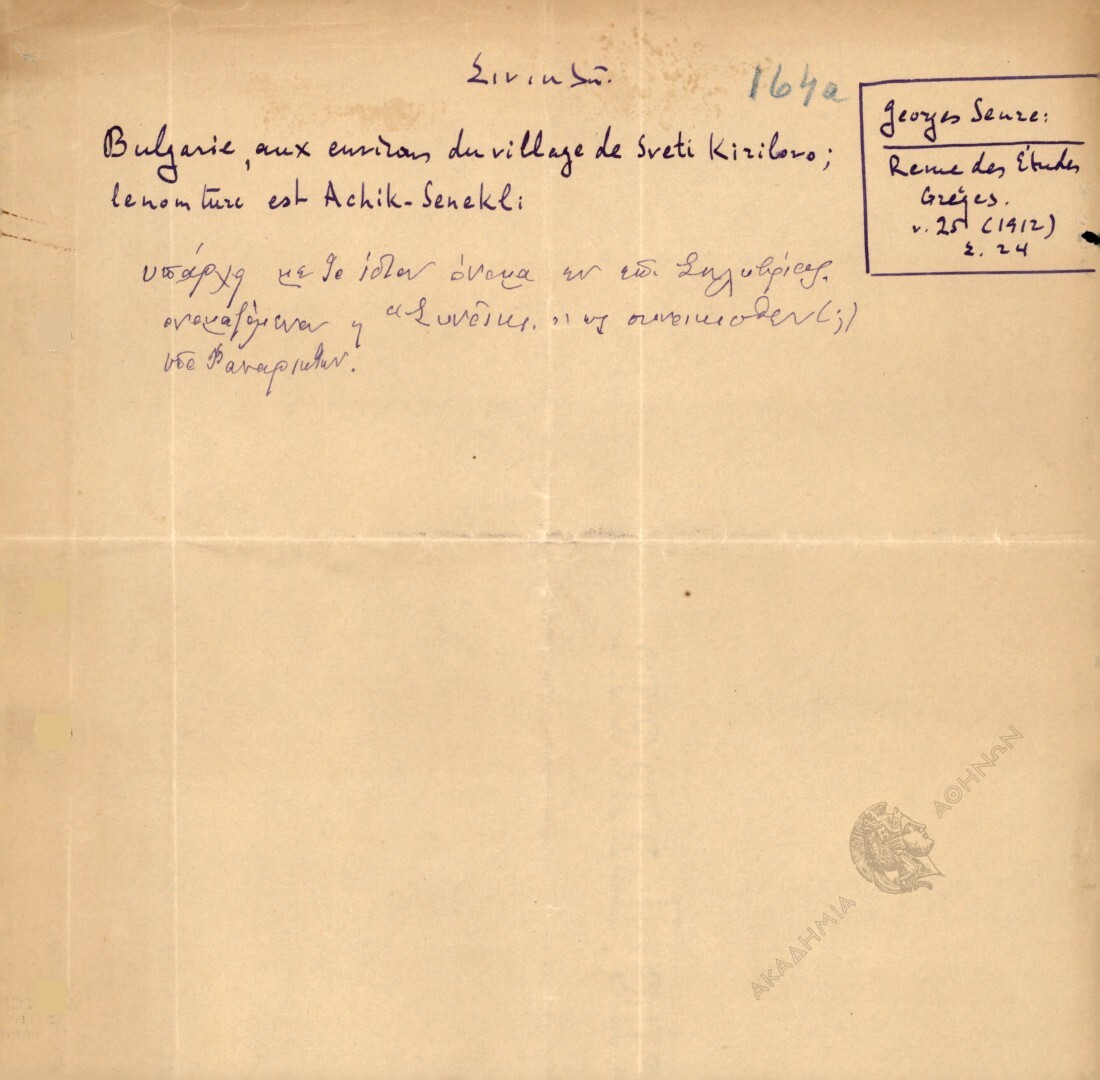 164a
Georges Seure:
Revue des Études
Grèges.
v. 25 (1912)
Σ. 24
Bulgarie, aux environs du village de Sveti Kirilovo;
le nom turc est Achik-Senekli
υπάρχη με το ίδιον όνομα εν επ. Σηλυβρίας
ονομαζόμενον η "Συνοικι." ως συνοικισθέν (;)
υπό Φαναριωτών.
ΑΚΑΔΗΜΙΑ ΑΘΗΝΩΝ